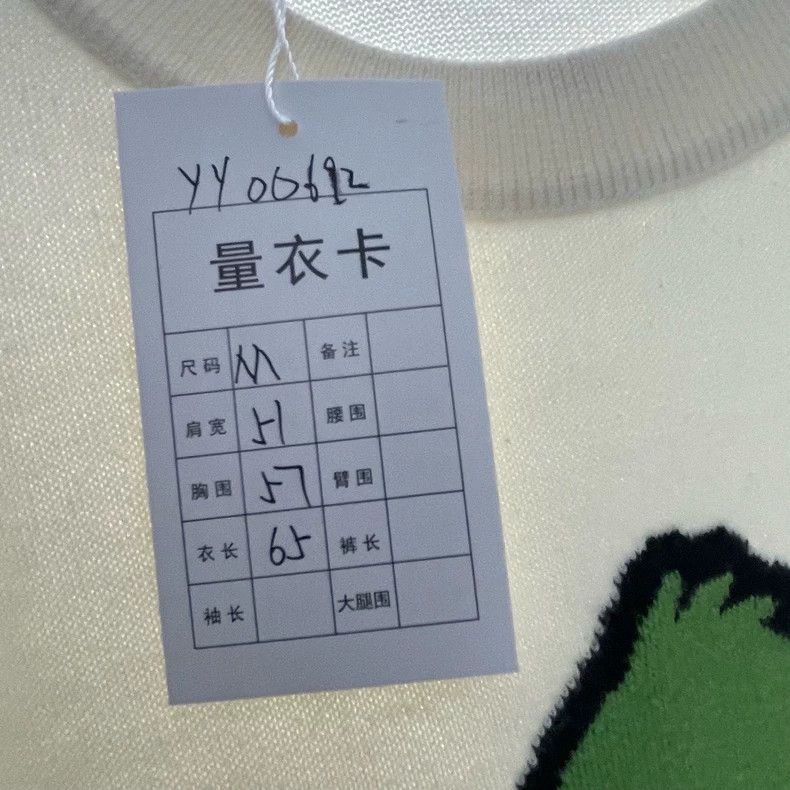 YY00692
量衣卡
尺码 M 备注
肩宽 51 腰围
胸围 57 臂围
衣长 65 裤长
袖长 大腿围